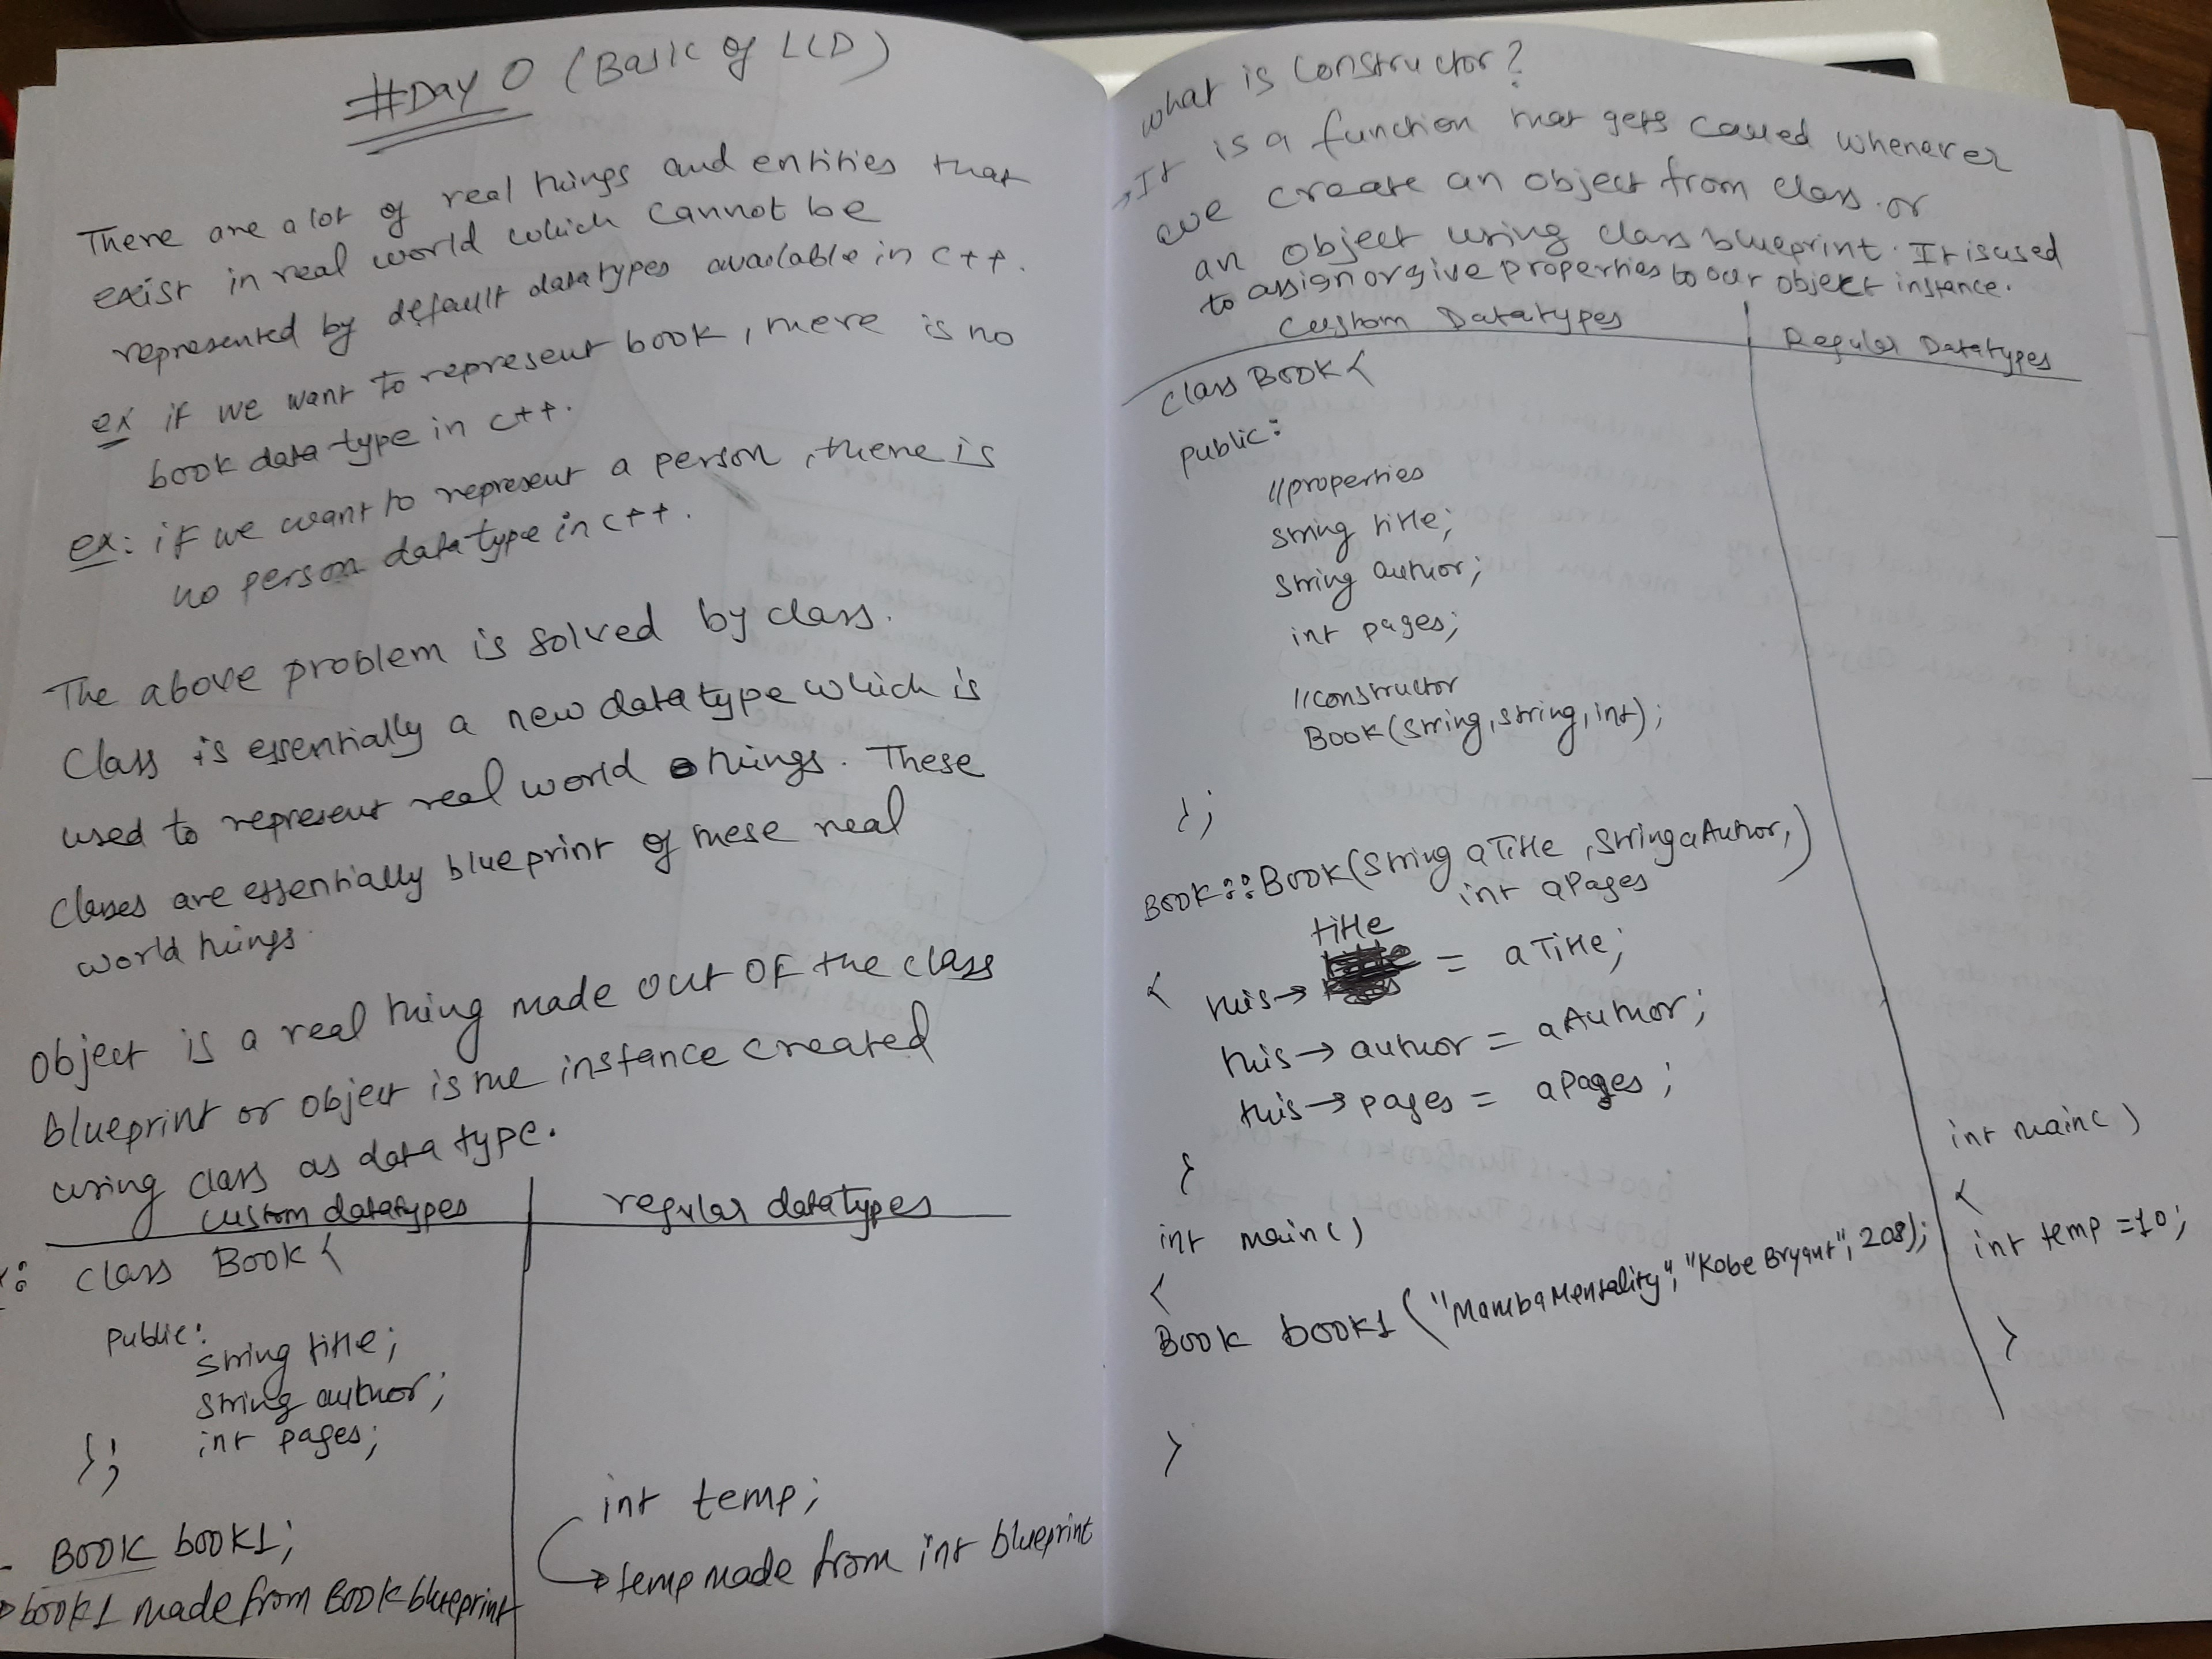 #Day 0 (Basic of LLD)
There are a lot of real things and entities that
exist in real world which cannot be
represented by default datatypes available in c++.
ex if we want to represent book, there is no
book data type in c++.
ex: if we want to represent a person, there is
no person data type in c++.
The above problem is solved by class.
Class is essentially a new data type which is
used to represent real world things. These
classes are essentially blueprint of these real
world things.
Object is a real thing made out of the class
blueprint or object is the instance created
using class as data type.
custom datatypes
regular datatypes
: class Book {
public:
string title;
string author;
int pages;
};
- Book book1;
book1 made from Book blueprint
int temp;
→ temp made from int blueprint
What is constructor?
→ It is a function that gets called whenever
we create an object from class or
an object using class blueprint. It is used
to assign or give properties to our object instance.
Custom Datatypes
Regular Datatypes
class Book {
public:
//properties
string title;
string author;
int pages;
//constructor
Book(string, string, int);
};
Book::Book(string aTitle, string aAuthor,
int aPages)
title
{ this→ = aTitle;
this→ author = aAuthor;
this→ pages = aPages;
}
int main()
{
Book book1 ("Mamba Mentality", "Kobe Bryant", 208);
}
int main()
{
int temp = 10;
}